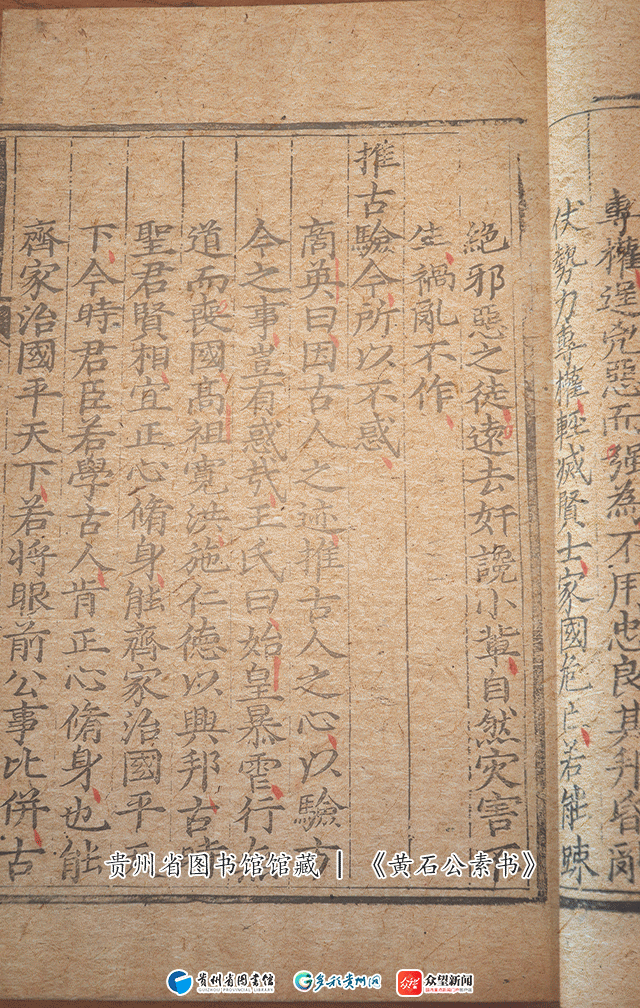 專權逞兇惡而強為不用忠良其邦昏亂
伏勢力專權、輕滅賢士、家國危亡、若能踈
絕邪惡之徒、遠去奸讒小輩、自然災害不
生、禍亂不作、
推古驗今所以不惑、
商英曰、因古人之迹、推古人之心、以驗方
今之事、豈有惑哉、王氏曰、始皇暴虐、行無
道而喪國、高祖寬洪、施仁德以興邦、古時
聖君賢相、宜正心脩身、能齊家治國平天
下、今時君臣、若學古人、肯正心脩身、也能
齊家治國平天下、若將眼前公事比併、古
贵州省图书馆馆藏 | 《黄石公素书》
贵州省图书馆
GUIZHOU PROVINCIAL LIBRARY
多彩贵州网
众望
众望新闻